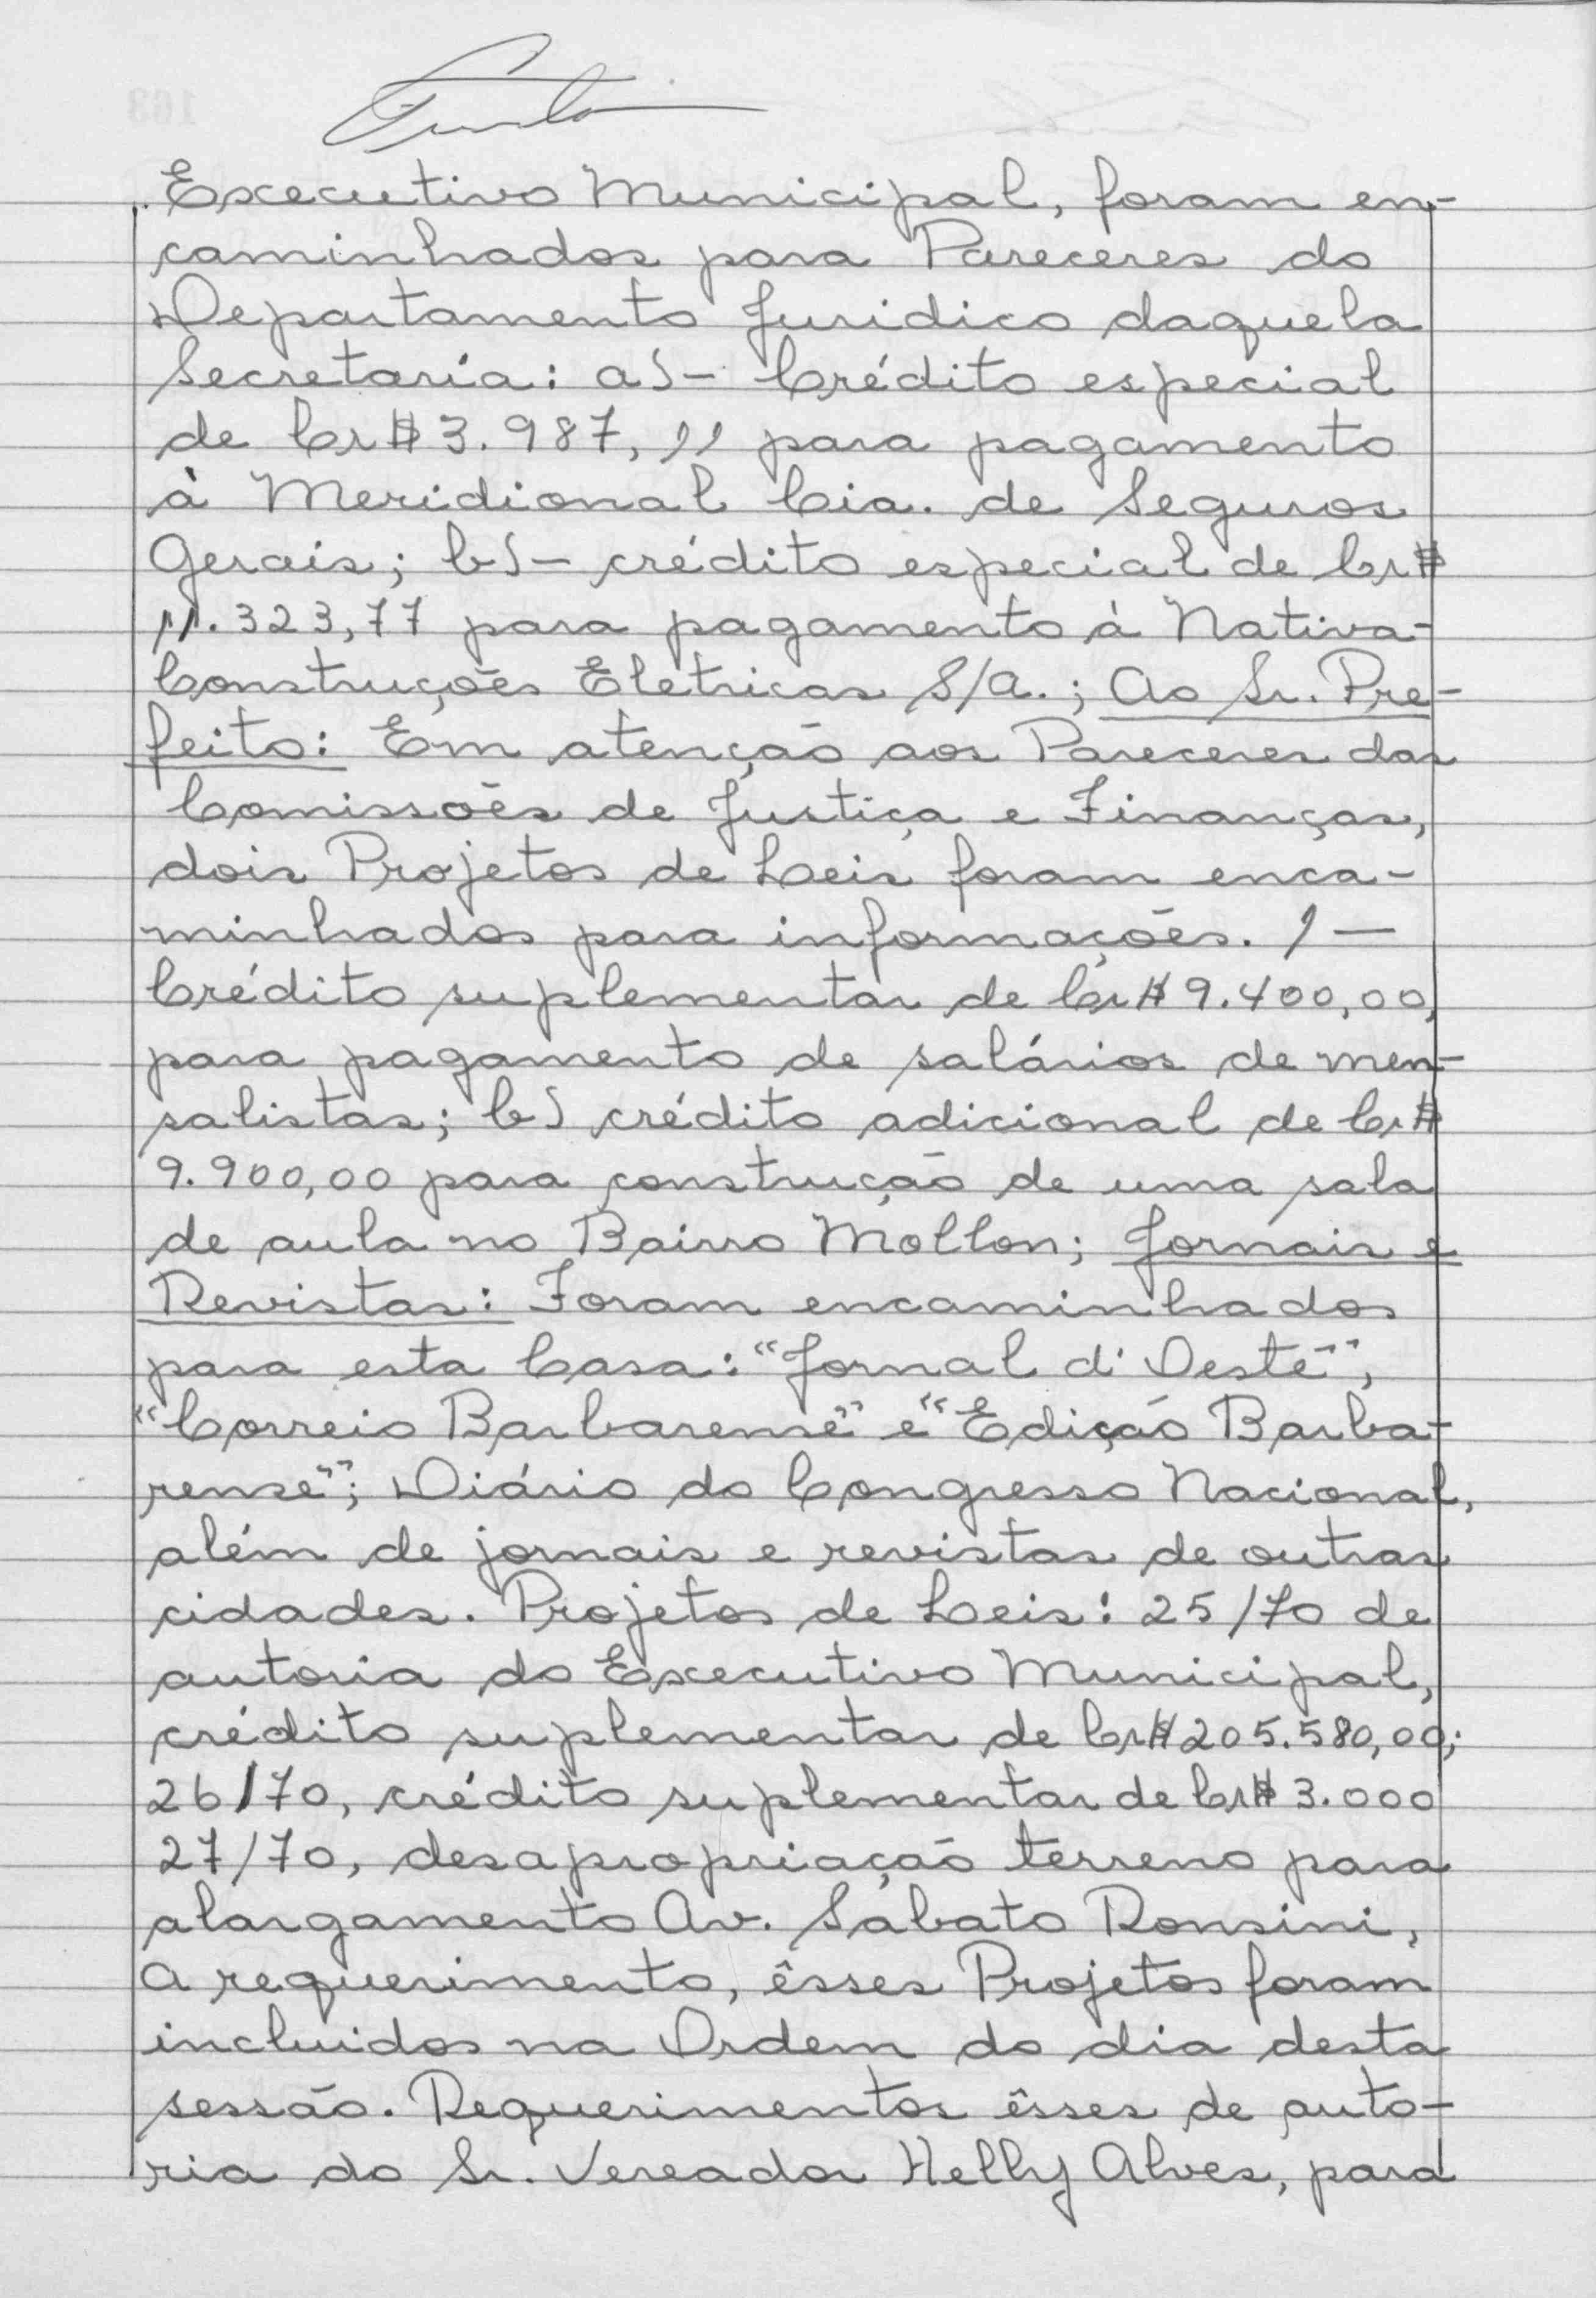 Executivo Municipal, foram en-
caminhados para Pareceres do
Departamento Juridico daquela
Secretaria: a)- Crédito especial
de Cr$ 3.987,11 para pagamento
à Meridional Cia. de Seguros
Gerais; b)- crédito especial de Cr$
11.323,77 para pagamento à Nativa-
Construções Eletricas S/A.; Ao Sr. Pre-
feito: Em atenção aos Pareceres das
Comissões de Justiça e Finanças,
dois Projetos de Leis foram enca-
minhados para informações. 1 —
Crédito suplementar de Cr$ 9.400,00,
para pagamento de salários de men-
salistas; b) crédito adicional de Cr$
9.900,00 para construção de uma sala
de aula no Bairro Mollon; Jornais e
Revistas: Foram encaminhados
para esta Casa: "Jornal d'Oeste",
"Correio Barbarense" e "Edição Barba-
rense"; Diário do Congresso Nacional,
além de jornais e revistas de outras
cidades. Projetos de Leis: 25/70 de
autoria do Executivo Municipal,
crédito suplementar de Cr$ 205.580,00;
26/70, crédito suplementar de Cr$ 3.000
27/70, desapropriação terreno para
alargamento Av. Sabato Ronsini,
A requerimento, êsses Projetos foram
incluidos na Ordem do dia desta
sessão. Requerimentos êsses de auto-
ria do Sr. Vereador Helly Alves, para